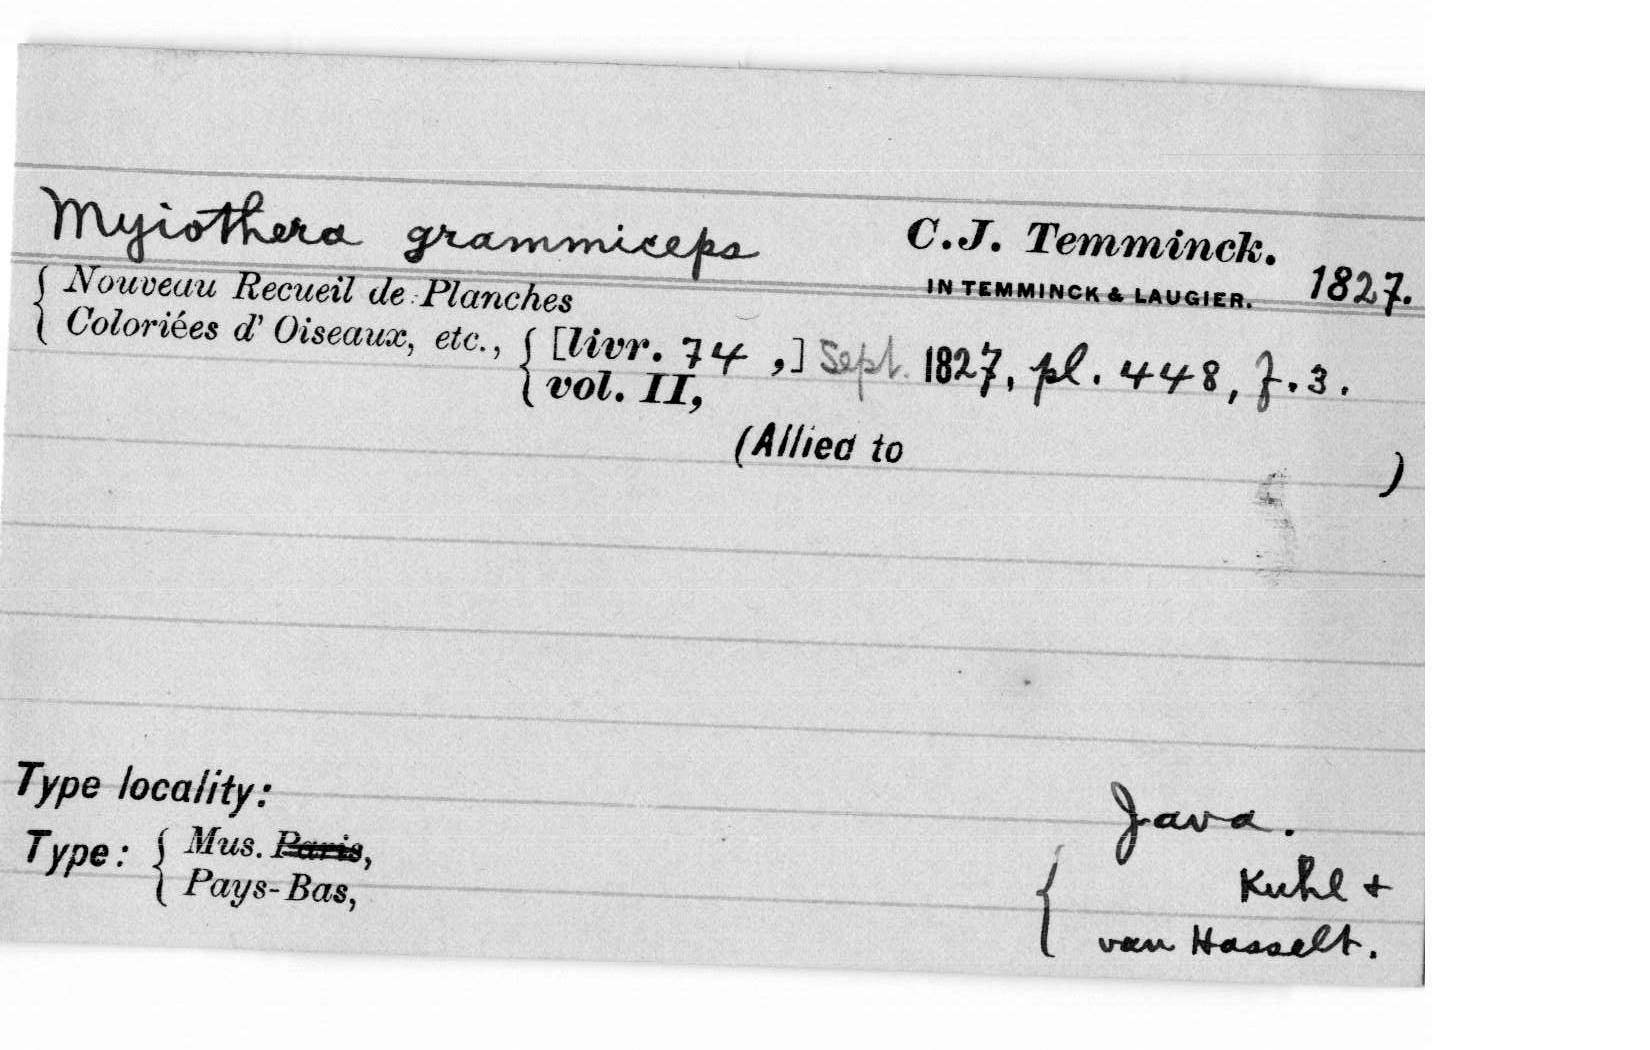 Myiothera grammiceps C.J. Temminck.
IN TEMMINCK & LAUGIER. 1827.
{ Nouveau Recueil de Planches
{ Coloriées d' Oiseaux, etc., { [livr. 74 ,] Sept. 1827, pl. 448, f. 3.
{ vol. II,
(Allied to )
Type locality: Java.
Type: { Mus. Paris, { Kuhl +
{ Pays-Bas, van Hasselt.